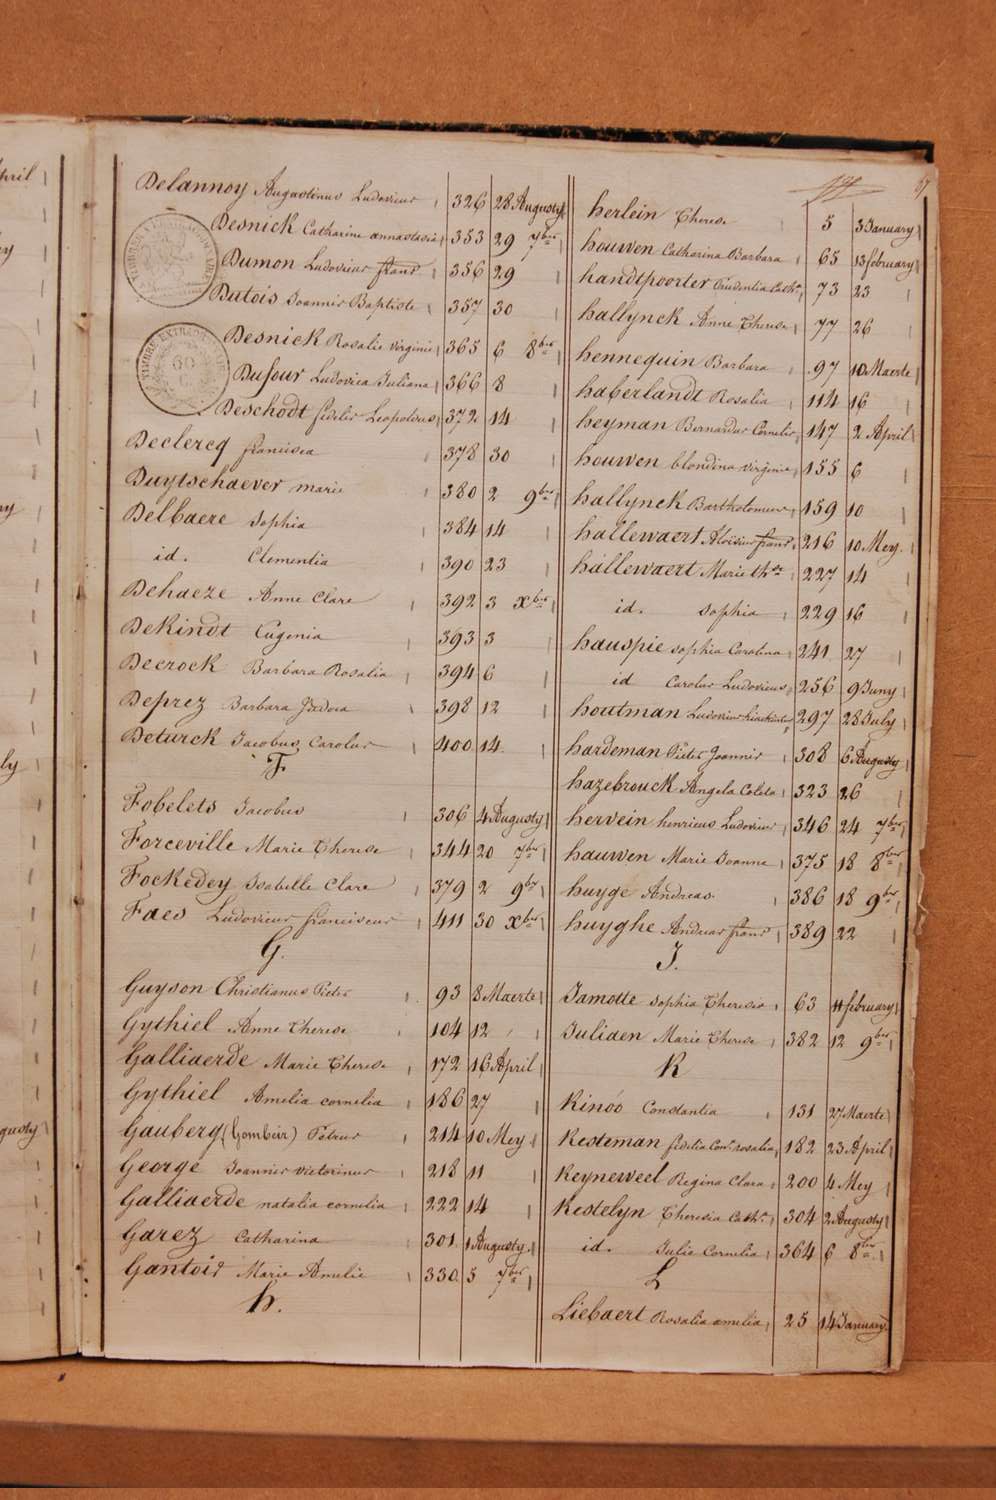 Delannoy Augustinus Ludovicus 326 28 Augusty
Desnick Catharina annastasia 353 29 7ber
Dumon Ludovicus frans 356 29
Dutois Joannis Baptiste 357 30
Desnick Rosalie virginie 365 6 8ber
Dufour Ludovica Juliana 366 8
Deschodt fidelis Leopoldus 372 14
Declercq francisca 378 30
Duytschaever marie 380 2 9ber
Delbaere Sophia 384 14
id. Clementia 390 23
Dehaeze Anne Clare 392 3 xber
DeKindt Eugenia 393 3
Decrock Barbara Rosalia 394 6
Deprez Barbara Isidora 398 12
Deturck Jacobus Carolus 400 14
F
Fobelets Jacobus 306 4 Augusty
Forceville Marie Therese 344 20 7ber
Fockedey Isabelle Clare 379 2 9br
Faes Ludovicus franciscus 411 30 xber
G.
Guyson Christianus Pieter 93 8 Maerte
Gythiel Anne Therese 104 12
Galliaerde Marie Therese 172 16 April
Gythiel Amelia cornelia 186 27
Gauberg (Gombeir) Petrus 214 10 Mey
George Joannis victorinus 218 11
Galliaerde natalia cornelia 222 14
Garez Catharina 301 1 Augusty
Gantois Marie Amelie 330 5 7ber
h.
67
herlein Therese 5 3 January
houwen Catharina Barbara 65 13 february
handtpoorter Prudentia Cath. 73 23
hallynck Anne Therese 77 26
hennequin Barbara 97 10 Maerte
haberlandt Rosalia 114 16
heyman Bernardus Cornelis 147 2 April
houwen blondina virginie 155 6
hallynck Bartholomeus 159 10
hallewaert Aloisius frans 216 10 Mey
hallewaert Marie th. 227 14
id. Sophia 229 16
hauspie sophia Carolina 241 27
id Carolus Ludovicus 256 9 Juny
houtman Ludovicus 297 28 July
hardeman Pieter Joannis 308 6 Augusty
hazebrouck Angela Coleta 323 26
hervein henricus Ludovicus 346 24 7ber
hauwen Marie Joanne 375 18 8ber
huyge Andreas 386 18 9ber
huyghe Andreas frans 389 22
J.
Jamotte sophia Theresia 63 11 february
Juliaen Marie Therese 382 12 9ber
K
Kinoo Constantia 131 27 Maerte
Kesteman fidelia Con. rosalia 182 23 April
Keyneweel Regina Clara 200 4 Mey
Kestelyn Theresia Cath. 304 2 Augusty
id. Julie Cornelia 364 6 8ber
L
Liebaert Rosalia amelia 25 14 January